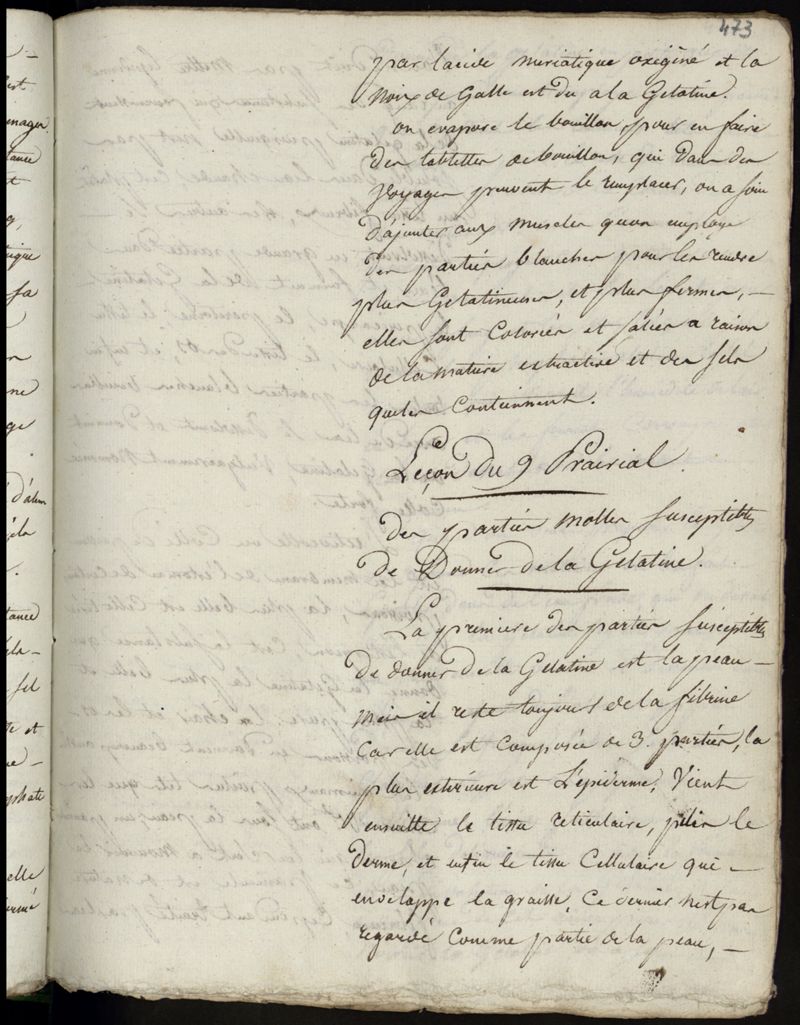 473
par lacide muriatique oxigéné et la
noix de Galle est du a la Gelatine.
on evapore le bouillon, pour en faire
des tablettes de bouillon, qui dans des
voyages peuvent le remplacer, on a soin
d'ajouter aux muscles quon employe
des parties blanches pour les rendre
plus Gelatineuses, et plus fermes, —
elles sont Colorées et salées a raison
de la matiere extractive et des sels
quelles Contiennent.
Leçon du 9 Prairial.
des parties molles susceptibles
de Donner de la Gelatine.
La premiere des parties susceptibles
de donner de la Gelatine est la peau —
mais il reste toujours de la fibrine
Car elle est Composée de 3. parties, la
plus exterieure est L'epiderme, Vient
ensuitte le tissu reticulaire, puis le
derme, et enfin le tissu Cellulaire qui —
enveloppe la graisse, Ce dernier nest pas
regardé Comme partie de la peau, —